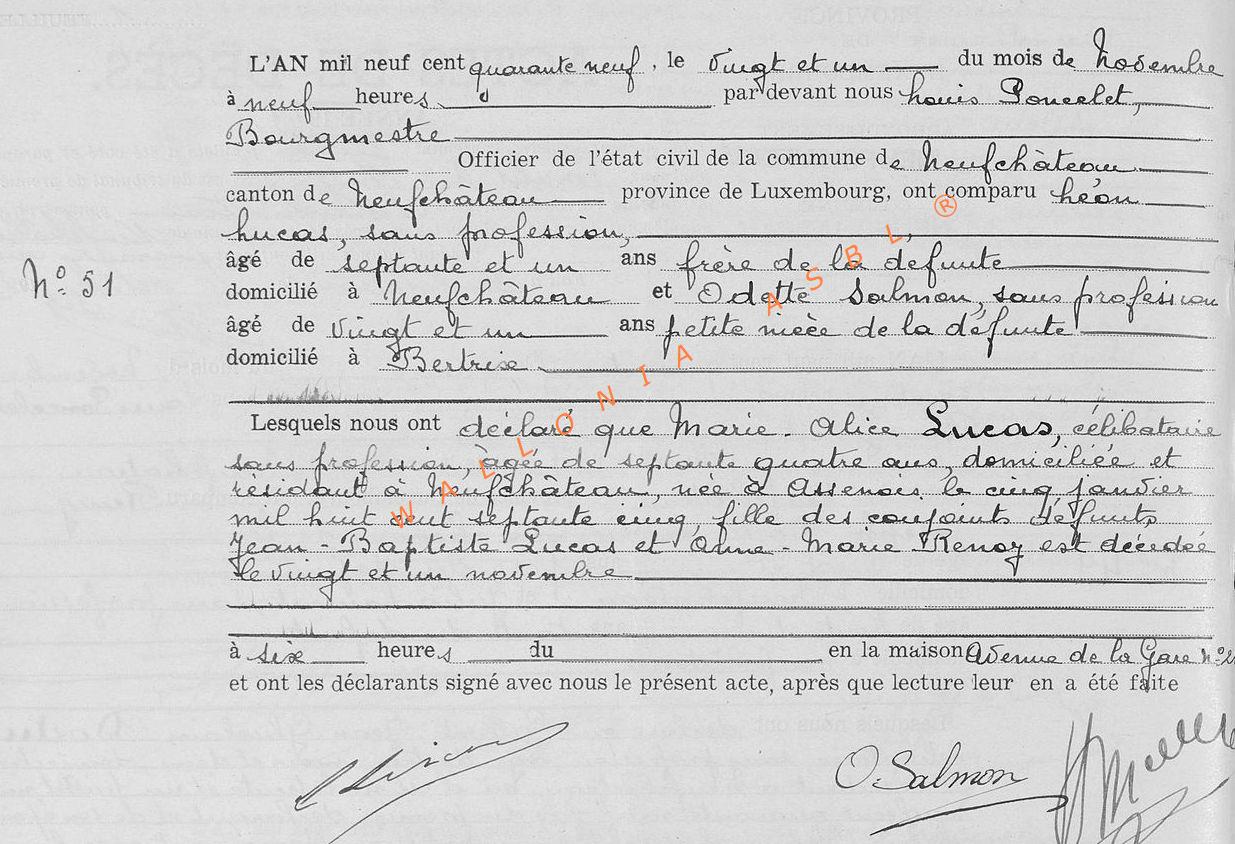 L'AN mil neuf cent quarante neuf, le vingt et un du mois de Novembre
à neuf heures par devant nous Louis Poncelet,
Bourgmestre
Officier de l'état civil de la commune de Neufchâteau
canton de Neufchâteau province de Luxembourg, ont comparu Léon
Lucas, sans profession,
âgé de septante et un ans frère de la défunte
N° 51
domicilié à Neufchâteau et Odette Salmon, sans profession
âgé de vingt et un ans petite nièce de la défunte
domicilié à Bertrix
Lesquels nous ont déclaré que Marie-Alice Lucas, célibataire
sans profession, âgée de septante quatre ans, domiciliée et
résidant à Neufchâteau, née à Assenois le cinq janvier
mil huit cent septante cinq, fille des conjoints défunts
Jean-Baptiste Lucas et Anne-Marie Renoy est décédée
le vingt et un novembre
à six heures du en la maison Avenue de la Gare N°
et ont les déclarants signé avec nous le présent acte, après que lecture leur en a été faite
O. Salmon
WALLONIA ASBL ®